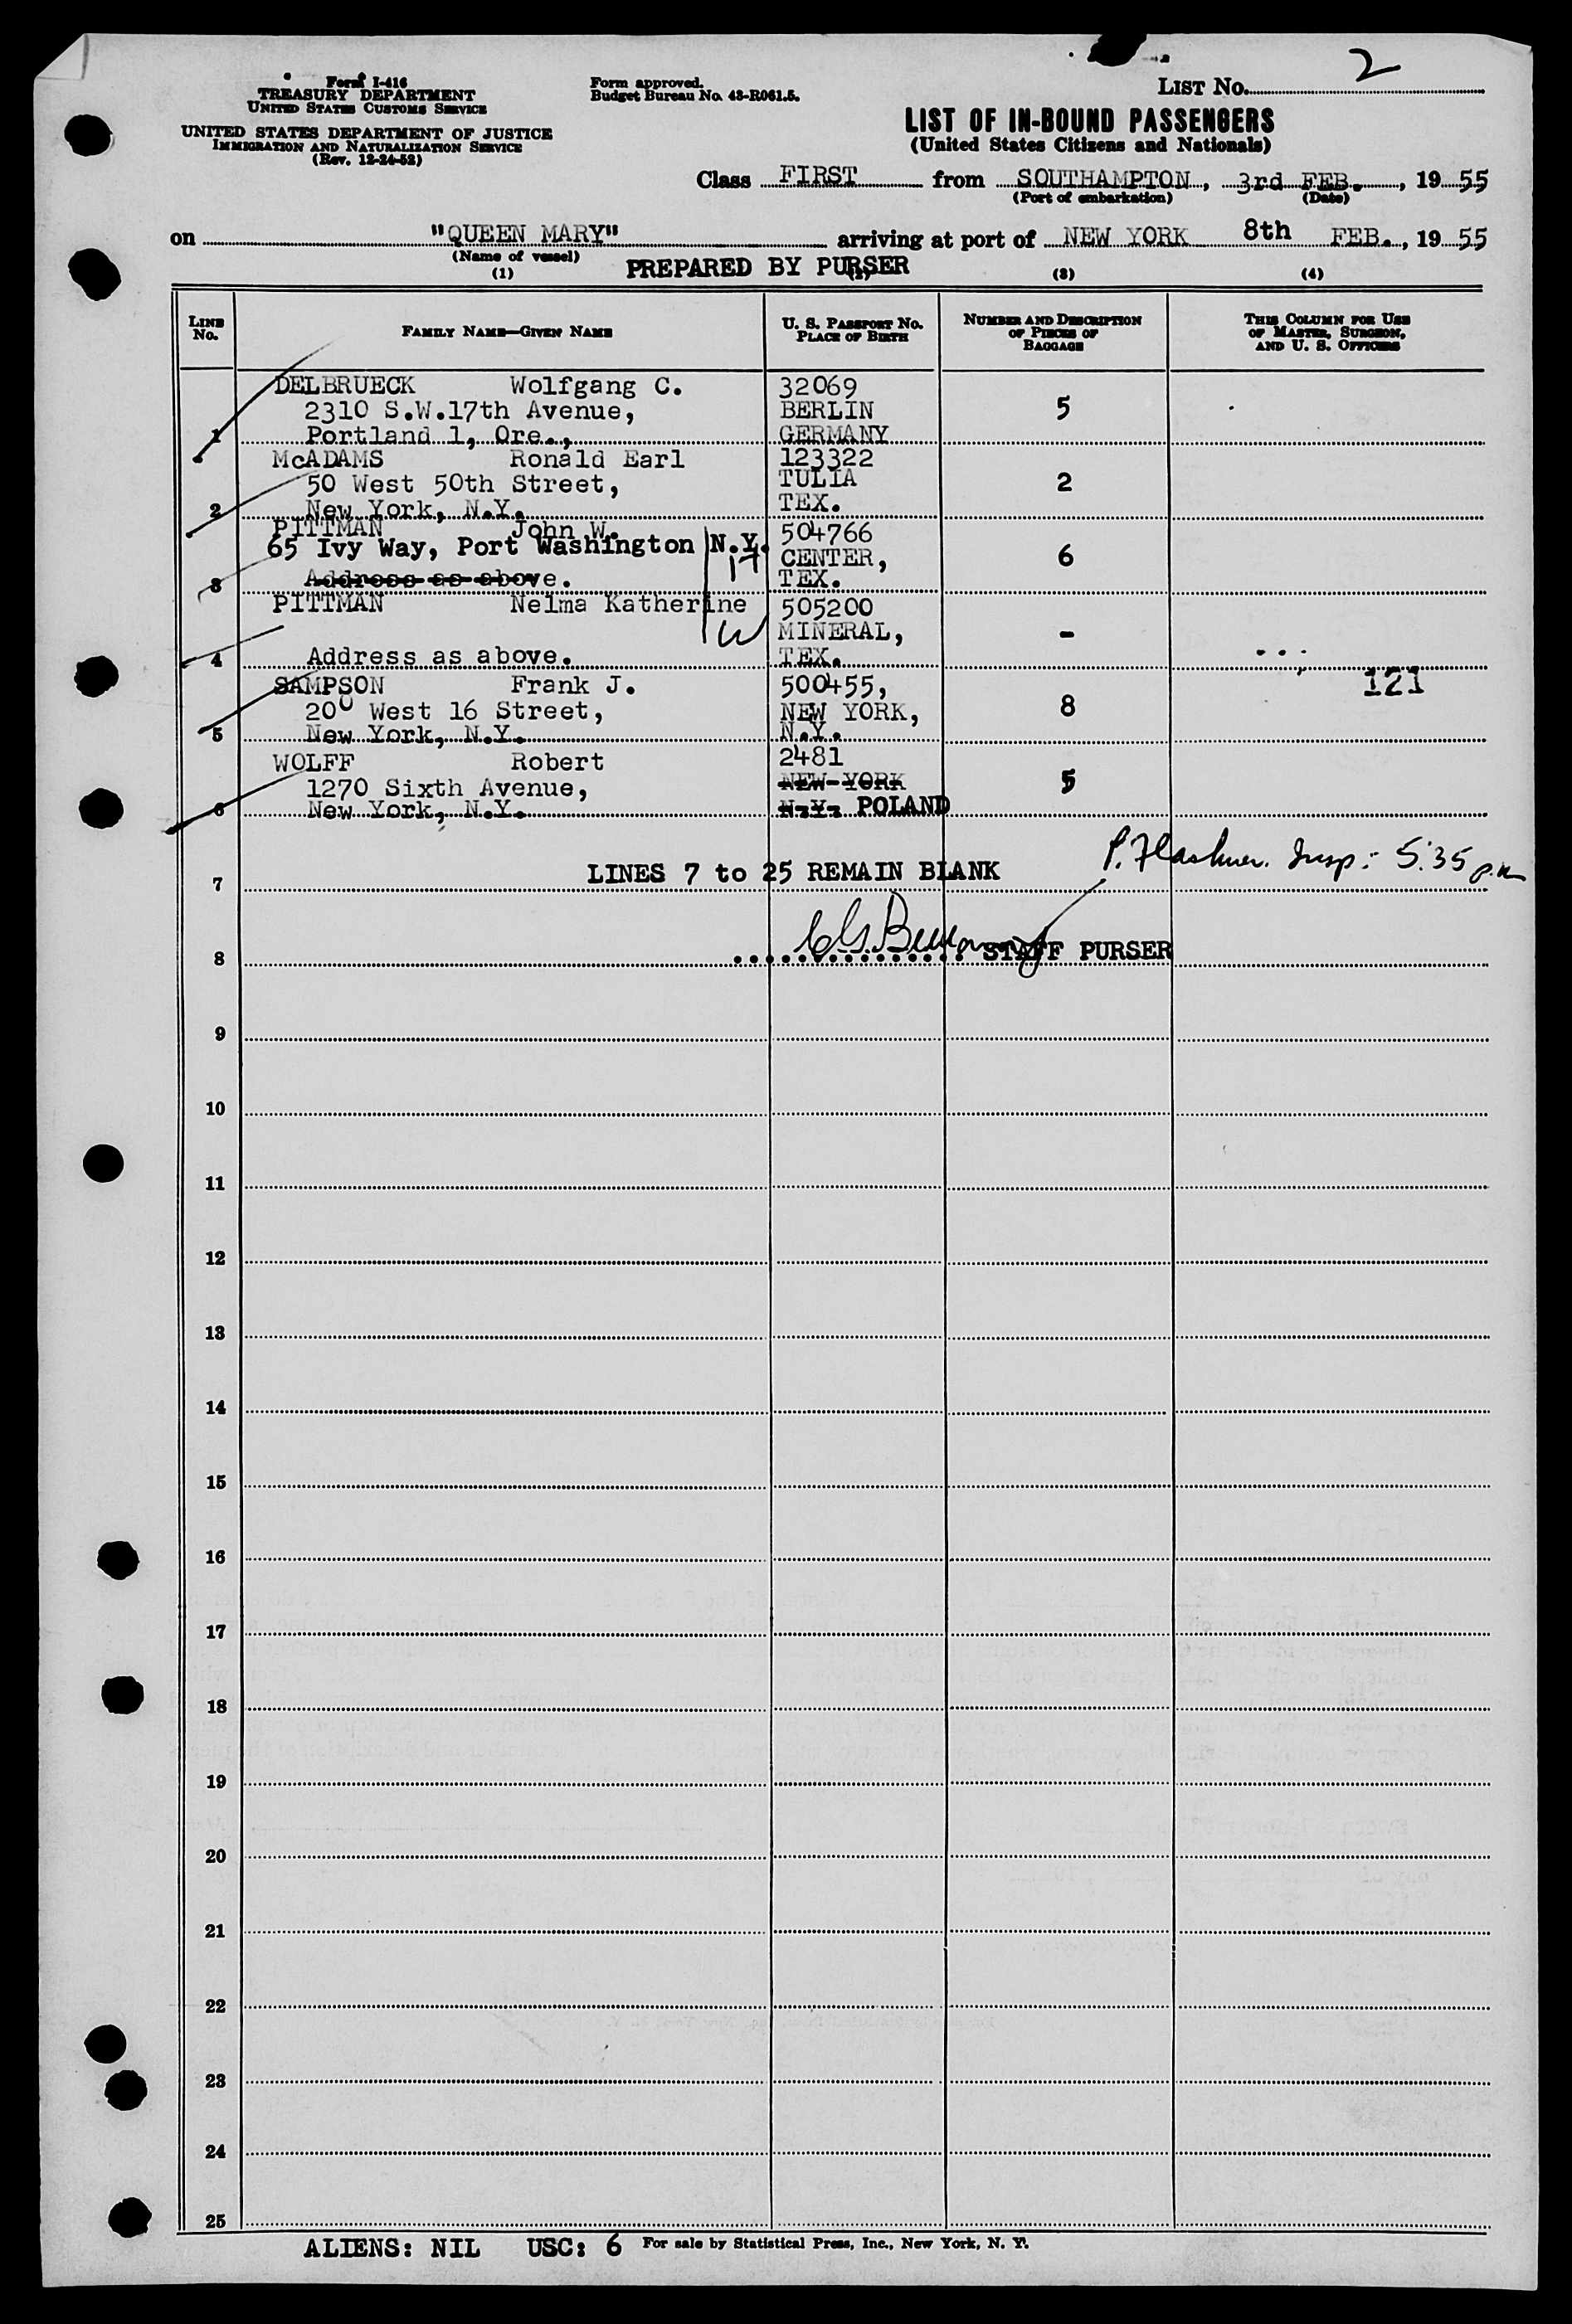 Form I-416
TREASURY DEPARTMENT
UNITED STATES CUSTOMS SERVICE
UNITED STATES DEPARTMENT OF JUSTICE
IMMIGRATION AND NATURALIZATION SERVICE
(Rev. 12-24-52)
Form approved.
Budget Bureau No. 43-R061.5.
LIST No. 2
LIST OF IN-BOUND PASSENGERS
(United States Citizens and Nationals)
Class FIRST from SOUTHAMPTON, 3rd FEB., 1955
(Port of embarkation) (Date)
on "QUEEN MARY" arriving at port of NEW YORK 8th FEB., 1955
(Name of vessel)
PREPARED BY PURSER
(1) (2) (3) (4)
LINE No.
FAMILY NAME—GIVEN NAME
U. S. PASSPORT No.
PLACE OF BIRTH
NUMBER AND DESCRIPTION
OF PIECES OF
BAGGAGE
THIS COLUMN FOR USE
OF MASTER, SURGEON,
AND U. S. OFFICERS
DELBRUECK Wolfgang C. 32069
2310 S.W.17th Avenue, BERLIN 5
1 Portland 1, Ore., GERMANY
McADAMS Ronald Earl 123322
50 West 50th Street, TULIA 2
2 New York, N.Y. TEX.
PITTMAN John W. 504766
65 Ivy Way, Port Washington N.Y. CENTER, 6
H
3 Address as above. TEX.
PITTMAN Nelma Katherine 505200
W MINERAL, -
4 Address as above. TEX.
121
SAMPSON Frank J. 500455,
200 West 16 Street, NEW YORK, 8
5 New York, N.Y. N.Y.
WOLFF Robert 2481
1270 Sixth Avenue, NEW YORK 5
6 New York, N.Y. N.Y. POLAND
P. Flashner. Insp: 5:35 p.m
7 LINES 7 to 25 REMAIN BLANK
8 STAFF PURSER
9
10
11
12
13
14
15
16
17
18
19
20
21
22
23
24
25
ALIENS: NIL USC: 6 For sale by Statistical Press, Inc., New York, N. Y.